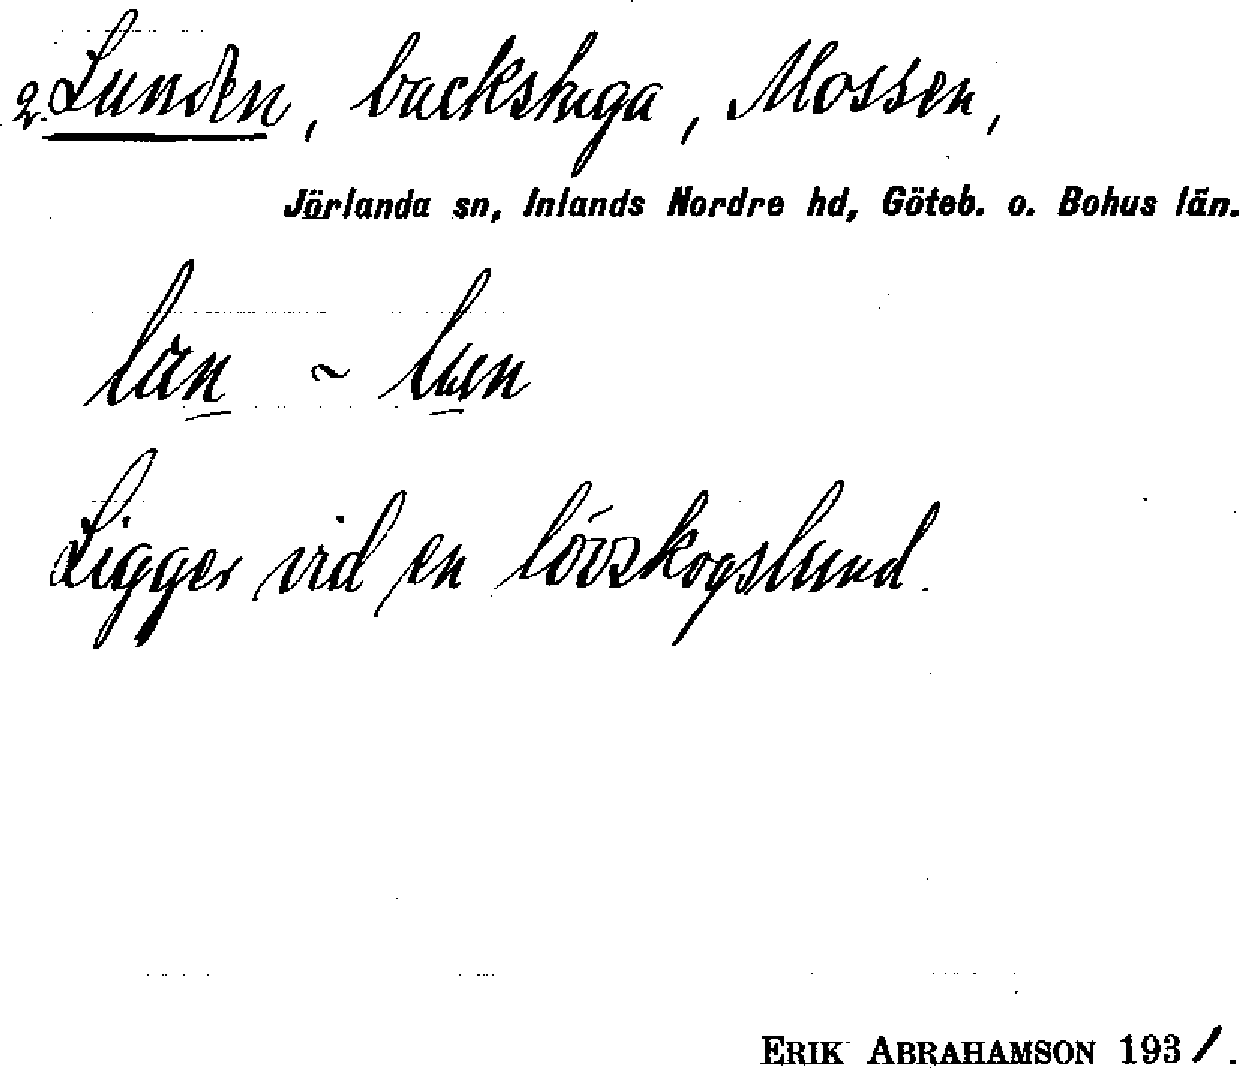 2. Lunden, backstuga, Mossen,
Jörlanda sn, Inlands Nordre hd, Göteb. o. Bohus län.
~
Ligger vid en lövskogslund.
ERIK ABRAHAMSON 1931.